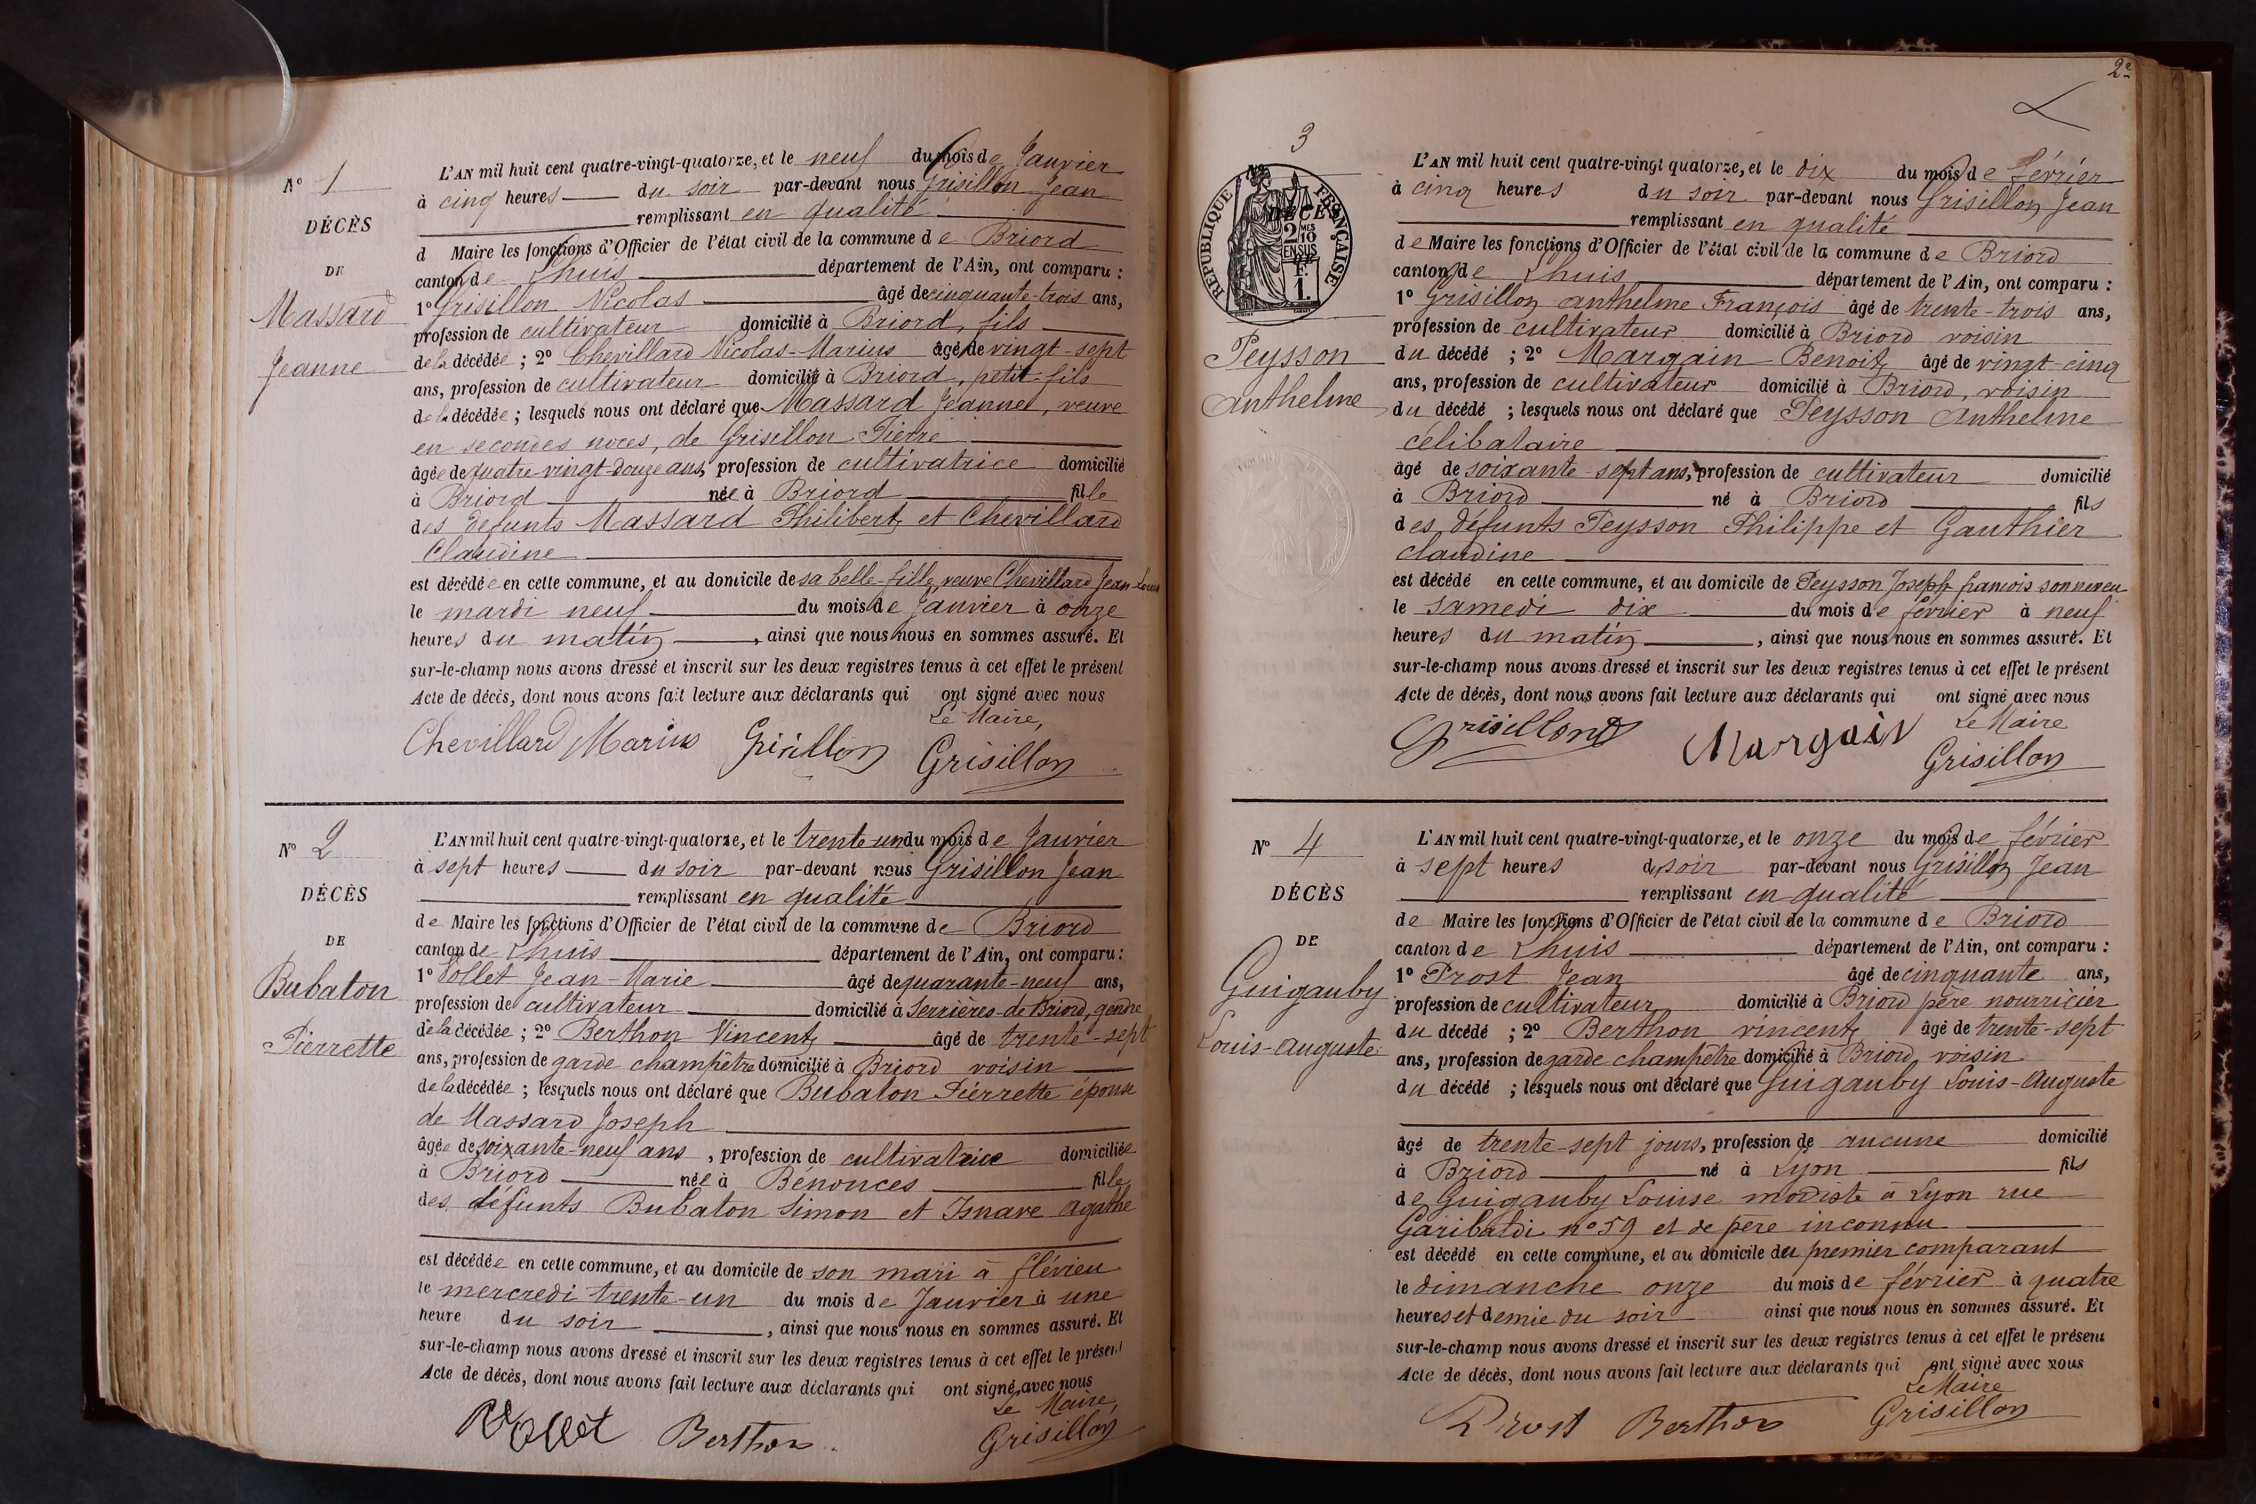 N° 1
DÉCÈS
DE
Massard
Jeanne
L'AN mil huit cent quatre-vingt-quatorze, et le neuf du mois de Janvier
à cinq heures du soir par-devant nous Grisillon Jean
remplissant en qualité
d Maire les fonctions d'Officier de l'état civil de la commune de Briord
canton de Lhuis département de l'Ain, ont comparu :
1° Grisillon Nicolas âgé de cinquante-trois ans,
profession de cultivateur domicilié à Briord, fils
de la décédée ; 2° Chevillard Nicolas-Marius âgé de vingt-sept
ans, profession de cultivateur domicilié à Briord, petit-fils
de la décédée ; lesquels nous ont déclaré que Massard Jeanne, veuve
en secondes noces, de Grisillon Pierre
âgée de quatre vingt-douze ans, profession de cultivatrice domicilié
à Briord née à Briord fille
des défunts Massard Philibert et Chevillard
Claudine
est décédée en cette commune, et au domicile de sa belle-fille, veuve Chevillard Jean-Louis
le mardi neuf du mois de Janvier à onze
heures du matin, ainsi que nous nous en sommes assuré. Et
sur-le-champ nous avons dressé et inscrit sur les deux registres tenus à cet effet le présent
Acte de décès, dont nous avons fait lecture aux déclarants qui ont signé avec nous
Le Maire,
Chevillard Marius Grisillon Grisillon
N° 2
DÉCÈS
DE
Bubaton
Pierrette
L'AN mil huit cent quatre-vingt-quatorze, et le trente-un du mois de Janvier
à sept heures du soir par-devant nous Grisillon Jean
remplissant en qualité
de Maire les fonctions d'Officier de l'état civil de la commune de Briord
canton de Lhuis département de l'Ain, ont comparu :
1° Vollet Jean-Marie âgé de quarante-neuf ans,
profession de cultivateur domicilié à Serrières-de-Briord, gendre
de la décédée ; 2° Berthon Vincent âgé de trente-sept
ans, profession de garde champêtre domicilié à Briord voisin
de la décédée ; lesquels nous ont déclaré que Bubaton Pierrette épouse
de Massard Joseph
âgée de soixante-neuf ans, profession de cultivatrice domiciliée
à Briord née à Bénonces fille
des défunts Bubaton Simon et Isnave Agathe
est décédée en cette commune, et au domicile de son mari à flévieu
le mercredi trente-un du mois de Janvier à une
heure du soir, ainsi que nous nous en sommes assuré. Et
sur-le-champ nous avons dressé et inscrit sur les deux registres tenus à cet effet le présent
Acte de décès, dont nous avons fait lecture aux déclarants qui ont signé avec nous
Le Maire,
Vollet Berthon Grisillon
2e
3
RÉPUBLIQUE FRANÇAISE
2 MES 10
EN SUS
F.
1.
Peysson
Anthelme
L'AN mil huit cent quatre-vingt quatorze, et le dix du mois de Février
à cinq heures du soir par-devant nous Grisillon Jean
remplissant en qualité
de Maire les fonctions d'Officier de l'état civil de la commune de Briord
canton de Lhuis département de l'Ain, ont comparu :
1° Grisillon Anthelme François âgé de trente-trois ans,
profession de cultivateur domicilié à Briord voisin
du décédé ; 2° Margain Benoit, âgé de vingt-cinq
ans, profession de cultivateur domicilié à Briord, voisin
du décédé ; lesquels nous ont déclaré que Peysson Anthelme
célibataire
âgé de soixante-sept ans, profession de cultivateur domicilié
à Briord né à Briord fils
des défunts Peysson Philippe et Gauthier
claudine
est décédé en cette commune, et au domicile de Peysson Joseph françois son neveu
le samedi dix du mois de février à neuf
heures du matin, ainsi que nous nous en sommes assuré. Et
sur-le-champ nous avons dressé et inscrit sur les deux registres tenus à cet effet le présent
Acte de décès, dont nous avons fait lecture aux déclarants qui ont signé avec nous
Le Maire
Grisillon Margain Grisillon
N° 4
DÉCÈS
DE
Guigauby
Louis-Auguste
L'AN mil huit cent quatre-vingt-quatorze, et le onze du mois de février
à sept heures du soir par-devant nous Grisillon Jean
remplissant en qualité
de Maire les fonctions d'Officier de l'état civil de la commune de Briord
canton de Lhuis département de l'Ain, ont comparu :
1° Prost Jean âgé de cinquante ans,
profession de cultivateur domicilié à Briord père nourricier
du décédé ; 2° Berthon vincent, âgé de trente-sept
ans, profession de garde champêtre domicilié à Briord, voisin
du décédé ; lesquels nous ont déclaré que Guigauby Louis-Auguste
âgé de trente-sept jours, profession de aucune domicilié
à Briord né à Lyon fils
de Guigauby Louise modiste à Lyon rue
Garibaldi n° 59 et de père inconnu
est décédé en cette commune, et au domicile du premier comparant
le dimanche onze du mois de février à quatre
heures et demie du soir ainsi que nous nous en sommes assuré. Et
sur-le-champ nous avons dressé et inscrit sur les deux registres tenus à cet effet le présent
Acte de décès, dont nous avons fait lecture aux déclarants qui ont signé avec nous
Le Maire
Prost Berthon Grisillon